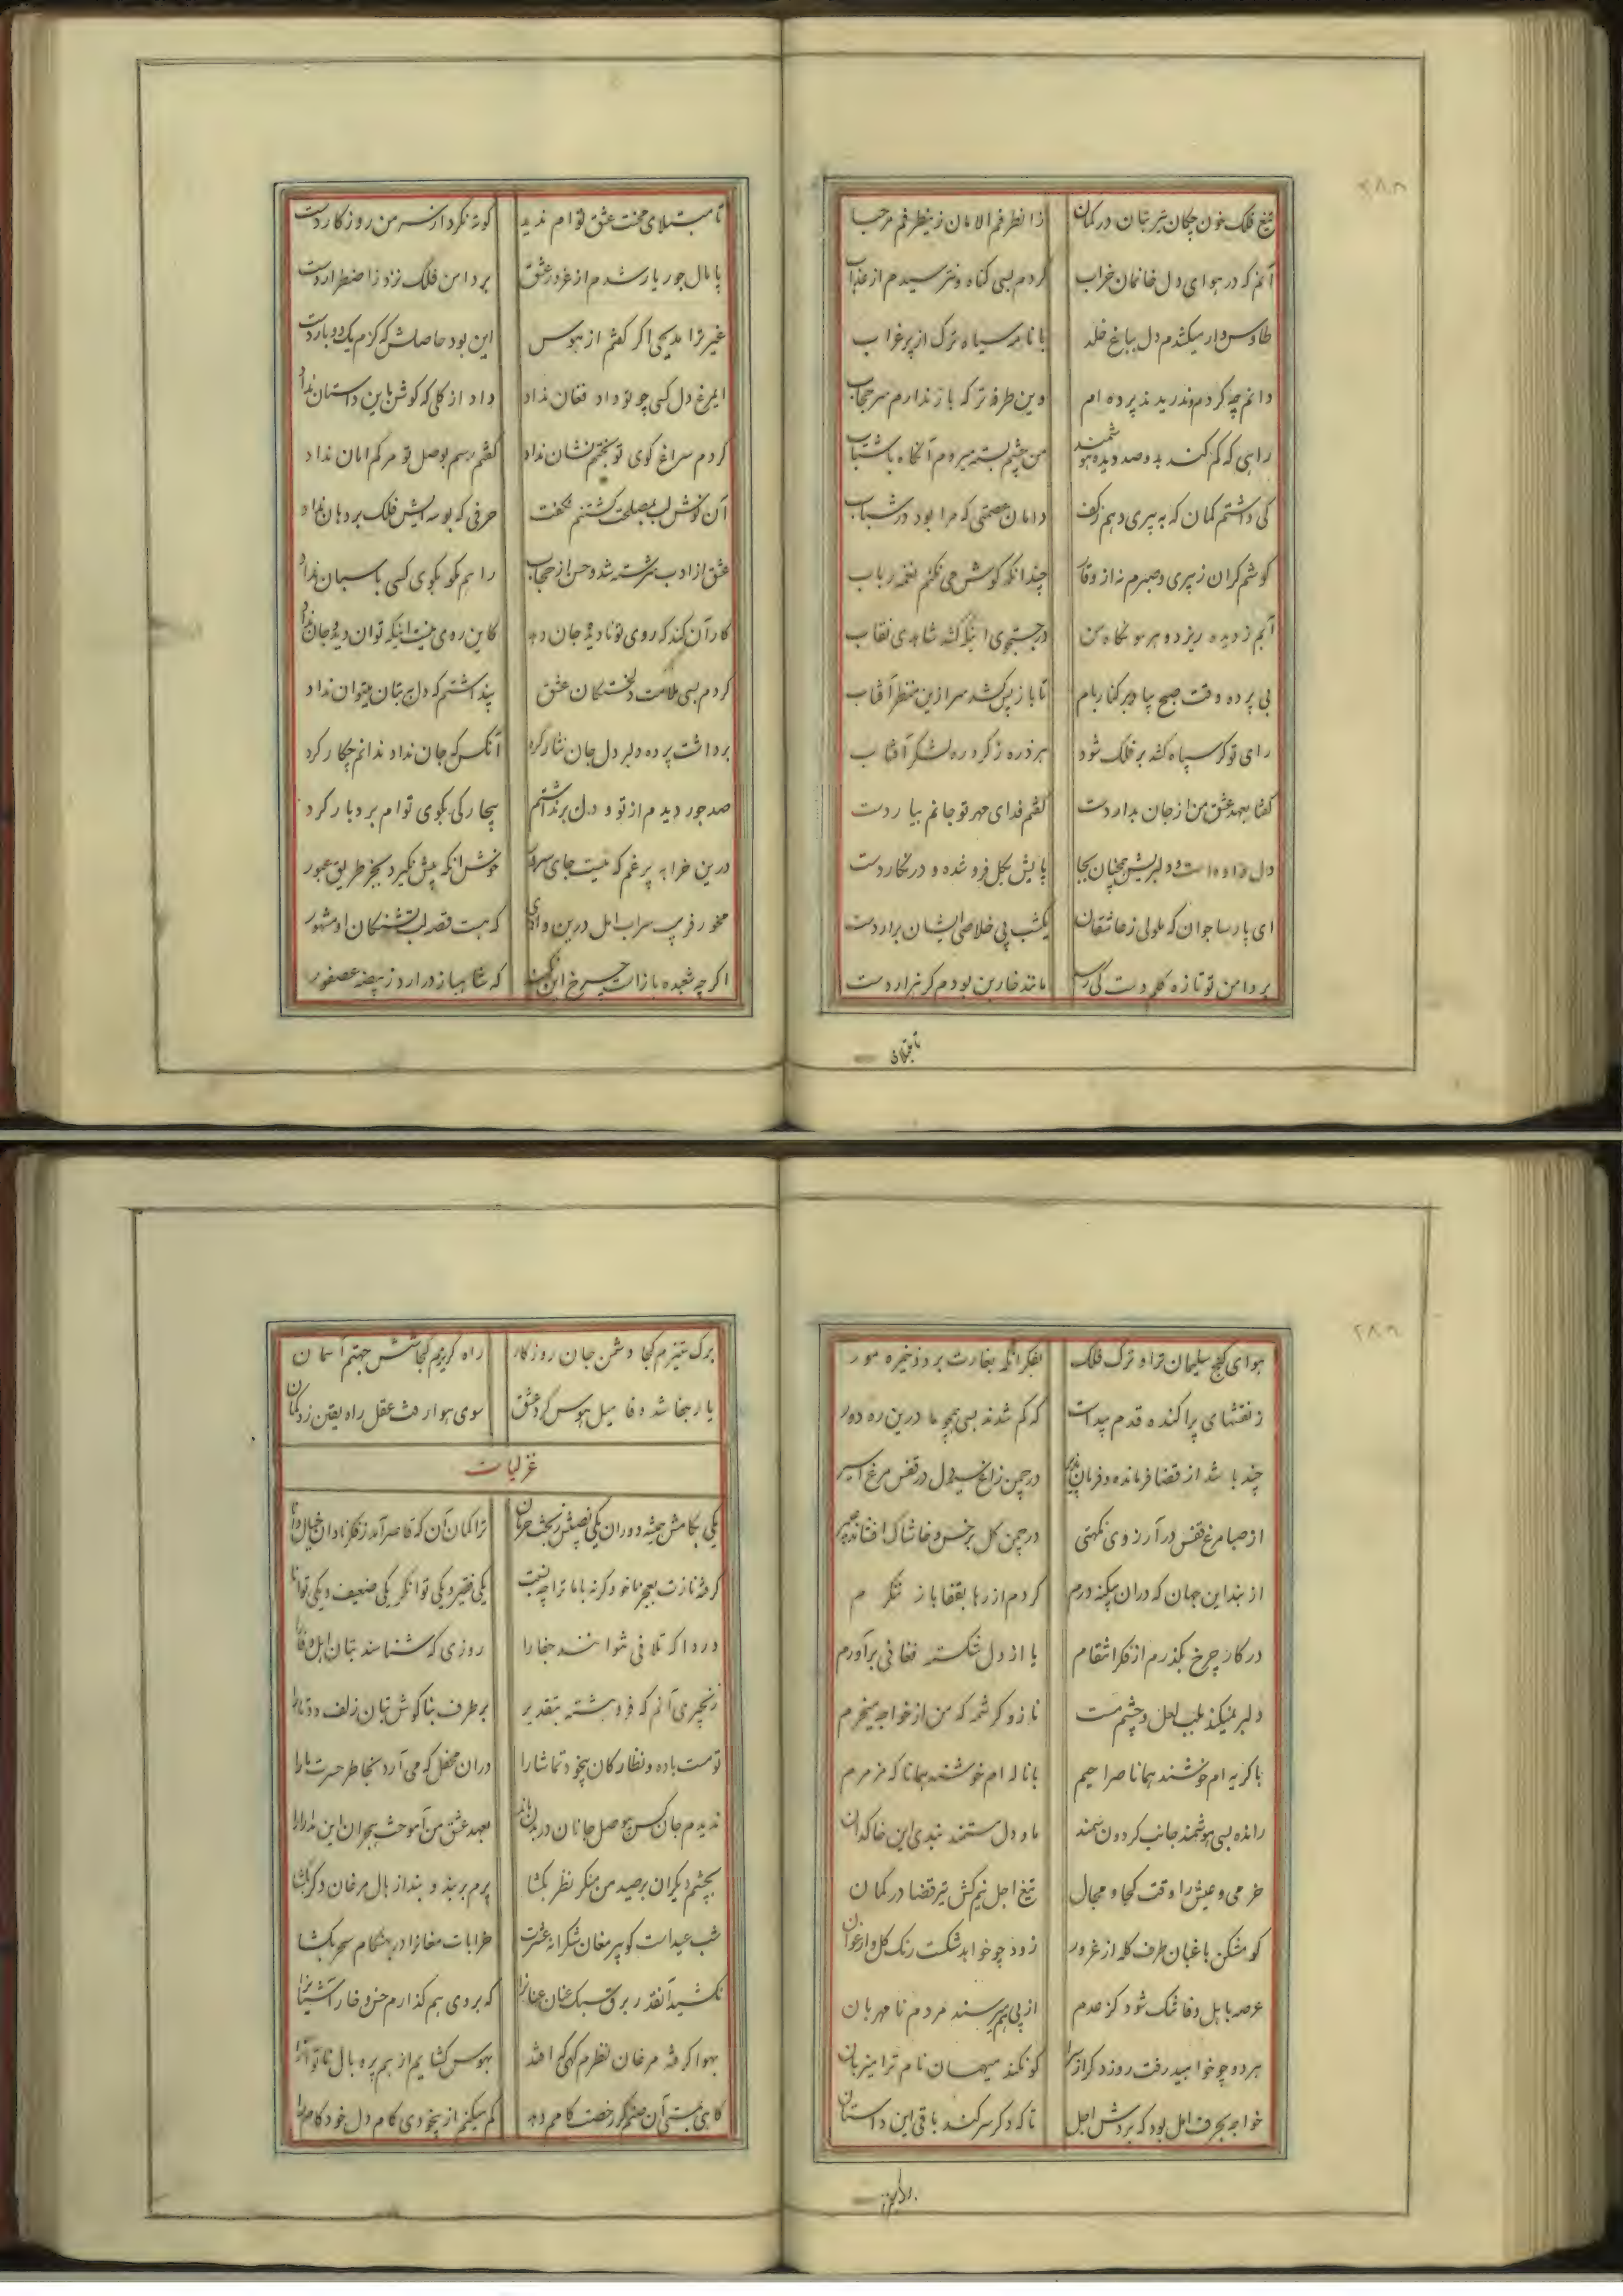 تیغ فلک خون چکان تیر بتان در کمان	زانطرفم الامان زینطرفم مرحبا
آنم که در هوای دل خانمان خراب	کردم بسی گناه و نترسیدم از عذاب
طاوس وار میکشدم دل بباغ خلد	با نامه سیاه ترک از پر غراب
دانم چه کردم و ندریدند پرده ام	وین طرفه تر که باز ندارم سر حجاب
راهی که گم کنند بدو صد دیده هوشمند	من چشم بسته میروم آنگاه با شتاب
کی داشتم گمان که به پیری دهم ز کف	دامان عصمتی که مرا بود در شباب
گوشم گران ز پیری و صبرم نه از وقار	چندانکه گوش می نکنم نغمه رباب
آبم ز دیده ریزد و هر سو نگاه من	در جستجوی اینکه کشد شاهدی نقاب
بی پرده وقت صبح بیا بر کنار بام	تا باز پس کشد سر ازین منظر آفتاب
رای تو گر سپاه کشد بر فلک شود	هر ذره ز گرد ره لشگر آفتاب
گفتا بعهد عشق من از جان بدار دست	گفتم فدای مهر تو جانم بیار دست
دل داده است و دلبریش همچنان بجا	پایش بگل فرو شده و در نگار دست
ای پارسا جوان که ملولی ز عاشقان	یکشب پی خلاصی ایشان برار دست
بر دامن تو تازه گلم دست کی رسد	مانند خاربن بودم گر هزار دست
تا مبتلای
تا مبتلای محنت عشق توام ندید	کوته نکرد از سر من روزگار دست
پامال جور یار شدم از غرور عشق	بر دامن فلک نزد ز اضطرار دست
غیر ترا مدیحی اگر گفتم از هوس	این بود حاصلش که گزم یک دو بار دست
ایمرغ دل کسی چو تو داد فغان نداد	داد از گلی که گوش باین داستان نداد
کردم سراغ کوی تو بختم نشان نداد	گفتم رسم بوصل تو مرگم امان نداد
آن نوش لب بمصلحت کشتنم نگفت	حرفی که بوسه ایش فلک بر دهان نداد
عشق از ادب سرشته شد و حسن از حجاب	راهم مگو بکوی کسی پاسبان نداد
کار آن کند که روی تو نادیده جان دهد	کاین روی نیست اینکه توان دید و جان نداد
کردم بسی ملامت دلخستگان عشق	پنداشتم که دل به بتان میتوان نداد
برداشت پرده دلبر و دل جان نثار کرد	آنکس که جان نداد ندانم چکار کرد
صد جور دیدم از تو و دل برنداشتم	بیچارگی بکوی توام بردبار کرد
درین خرابه پر غم که نیست جای سرور	خوش آنکه پیش نگیرد بجز طریق عبور
مخور فریب سراب امل درین وادی	که هست قصه لب تشنگان او مشهور
اگرچه شعبده بازاست چرخ این	که شاهباز درارد ز بیضه عصفور
هوای گنج سلیمان ترا و ترک فلک	بفکر آنکه بغارت برد ذخیره مور
ز نقشهای پراکنده قدم پیداست	که گم شدند بسی همچو ما درین ره دور
چند باشد از قضا فرمانده و فرمان پذیر	در چمن زاغ سیه دل در قفس مرغ اسیر
از صبا مرغ قفس در آرزوی نکهتی	در چمن گل بر خس و خاشاک افشانده عبیر
از بند این جهان که دران میکند درم	گردم از رها بقفا باز ننگرم
در کار چرخ بگذرم از فکر انتقام	یا از دل شکسته فغانی برآورم
دلبر نمیکند طلب لعل و چشم مست	ناز و کرشمه که من از خواجه میخرم
با گریه ام خوشند همانا صراحیم	با ناله ام خوشند همانا که مزمرم
رانده بسی هوشمند جانب گردون سمند	ما و دل مستمند بندی این خاکدان
خرمی و عیش را وقت کجا و مجال	تیغ اجل نیم کش تیر قضا در کمان
گو مشکن باغبان طرف کله از غرور	زود چو خواهد شکست رنگ گل و ارغوان
عرصه باهل وفا تنگ شود کز عدم	از پی هم میرسند مردم نامهربان
هر دو چو خواهید رفت روز دگر ازسرا	گو نکند میهمان نام ترا میزبان
خواجه بحرف امل بود که بردش اجل	تا که دگر سر کند باقی این داستان
برگ ستیزم کجا دشمن جان روزگار	راه گریزم کجا شش جهتم آسمان
یار بجفا شد وفا میل هوس گرد عشق	سوی هوا رفت عقل راه یقین زد گمان
غزلیات
یکی بکامش همیشه دوران یکی نصیبش ز بخت حرمان	ترا گمان آن که قاصر آمد ز فکر نادان خیال دانا
گرفته نازت بعجز ما خو وگرنه با ما ترا چه نسبت	یکی فقیر و یکی توانگر یکی ضعیف و یکی توانا
دردا که تلافی نتوانند جفا را	روزی که شناسند بتان اهل وفا را
زنجیری آنم که فرو هشته بتقدیر	بر طرف بناگوش بتان زلف دو تا را
تو مست باده و نظارگان بیخود تماشا را	دران محفل که می آرد بخاطر حسرت ما را
ندیدم جان کس جز وصل جانان در بدن ماند	بعهد عشق من آموخت هجران این مدارا را
بچشم دیگران بر صید من منگر نظر بگشا	پرم بربند و بند از بال مرغان دگر بگشا
شب عید است گو پیر مغان شکرانه عشرت	خرابات مغانرا در بهنگام سحر بگشا
نکشید آنقدر برق سبک عنان عنانرا	که بروی هم گذارم خس و خار آشیانرا
بهوا گرفته مرغان نظرم گهی که افتد	بهوس گشایم از هم پر و بال ناتوانرا
گاهی بمستی آن صنم گر رخصت کامم دهد	گم میکنم از بیخودی کام دل خود کام را